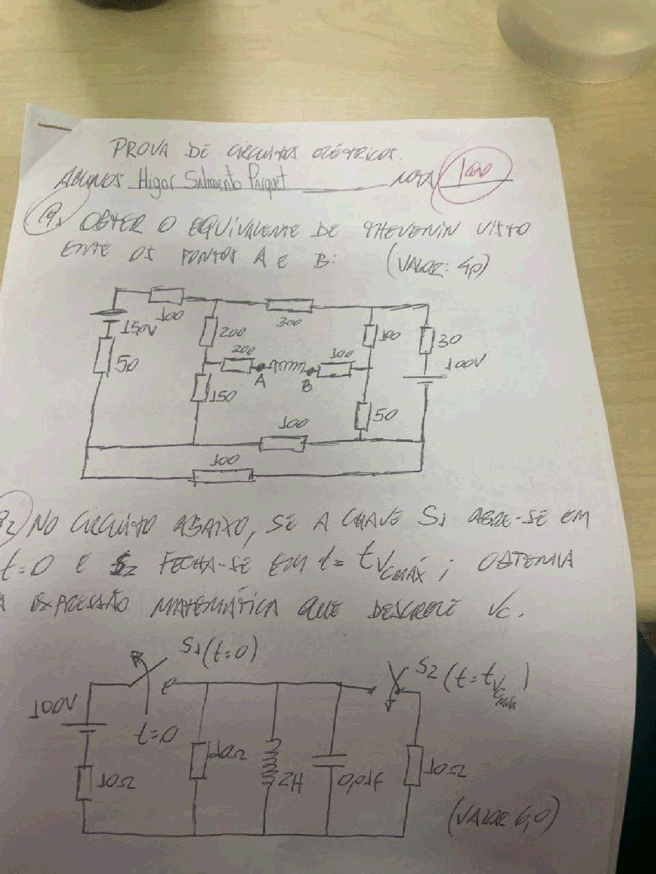 PROVA DE CIRCUITOS ELÉTRICOS.
ALUNOS Higor NOTA
1Q. OBTER O EQUIVALENTE DE THEVENIN VISTO
ENTE OS PONTOS A E B: (VALOR: 4p)
100
300
150V
200
100
30
50
200
100
100V
A
B
150
50
100
100
2) NO CIRCUITO ABAIXO, SE A CHAVE S1 ABRE-SE EM
t=0 E S2 FECHA-SE EM t= tVCMÁX; OBTENHA
A EXPRESSÃO MATEMÁTICA QUE DESCREVE VC.
S1 (t=0)
S2 (t=t
100V
t=0
10Ω
2H
0,01F
10Ω
10Ω
(VALOR: 6,0)